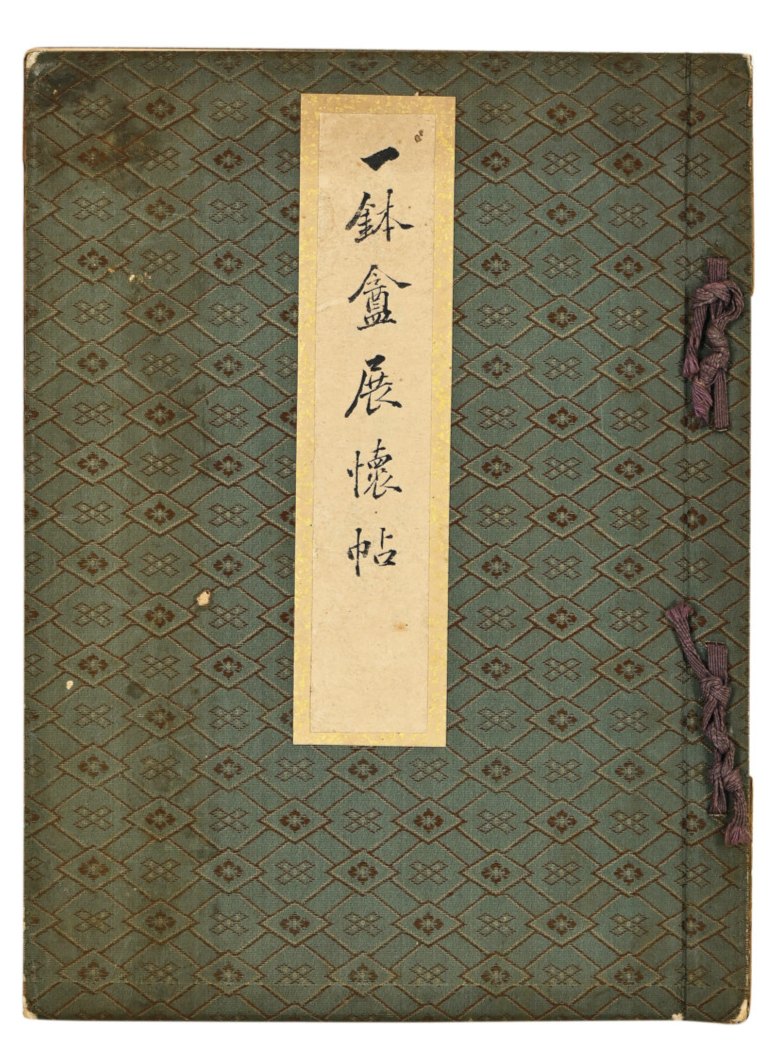 一鉢盦展懷帖